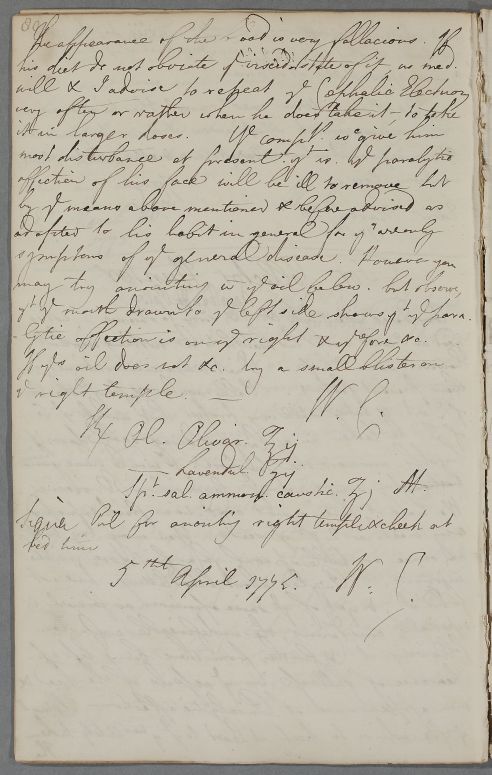 The appearance of the road is very fallacious. If
his diet do not obviate yᵉ viscid state of it, as med.
will & I advise to repeat yᵉ Cephalic Electuary
very often or rather when he does take it – to take
it in larger doses. Yᵉ compˡᵗ wᶜ give him
most disturbance at present. yᵗ is. yᵉ paralytic
affection of his face will be ill to remove but
by yᵉ means above mentioned & before advised as
adapted to his habit in general for yᵉ are only
symptoms of yᵉ general disease. However you
may try anointing wᵗ yᵉ oil below. but observe,
yᵗ yᵉ mouth drawn to yᵉ left side shows yᵗ yᵉ para
lytic affection is on yᵉ right & yʳfore &c.
If yˢ oil does not &c. try a small blister on
yᵉ right temple. —
W. C.
℞ Ol. Olivar. ℥ij
— Lavendul.
Spᵗ. sal. ammon. caustic. ʒj M.
Signa Oil for anointg right temple & cheek at
bed time
5ᵗʰ April 1775. W. C.